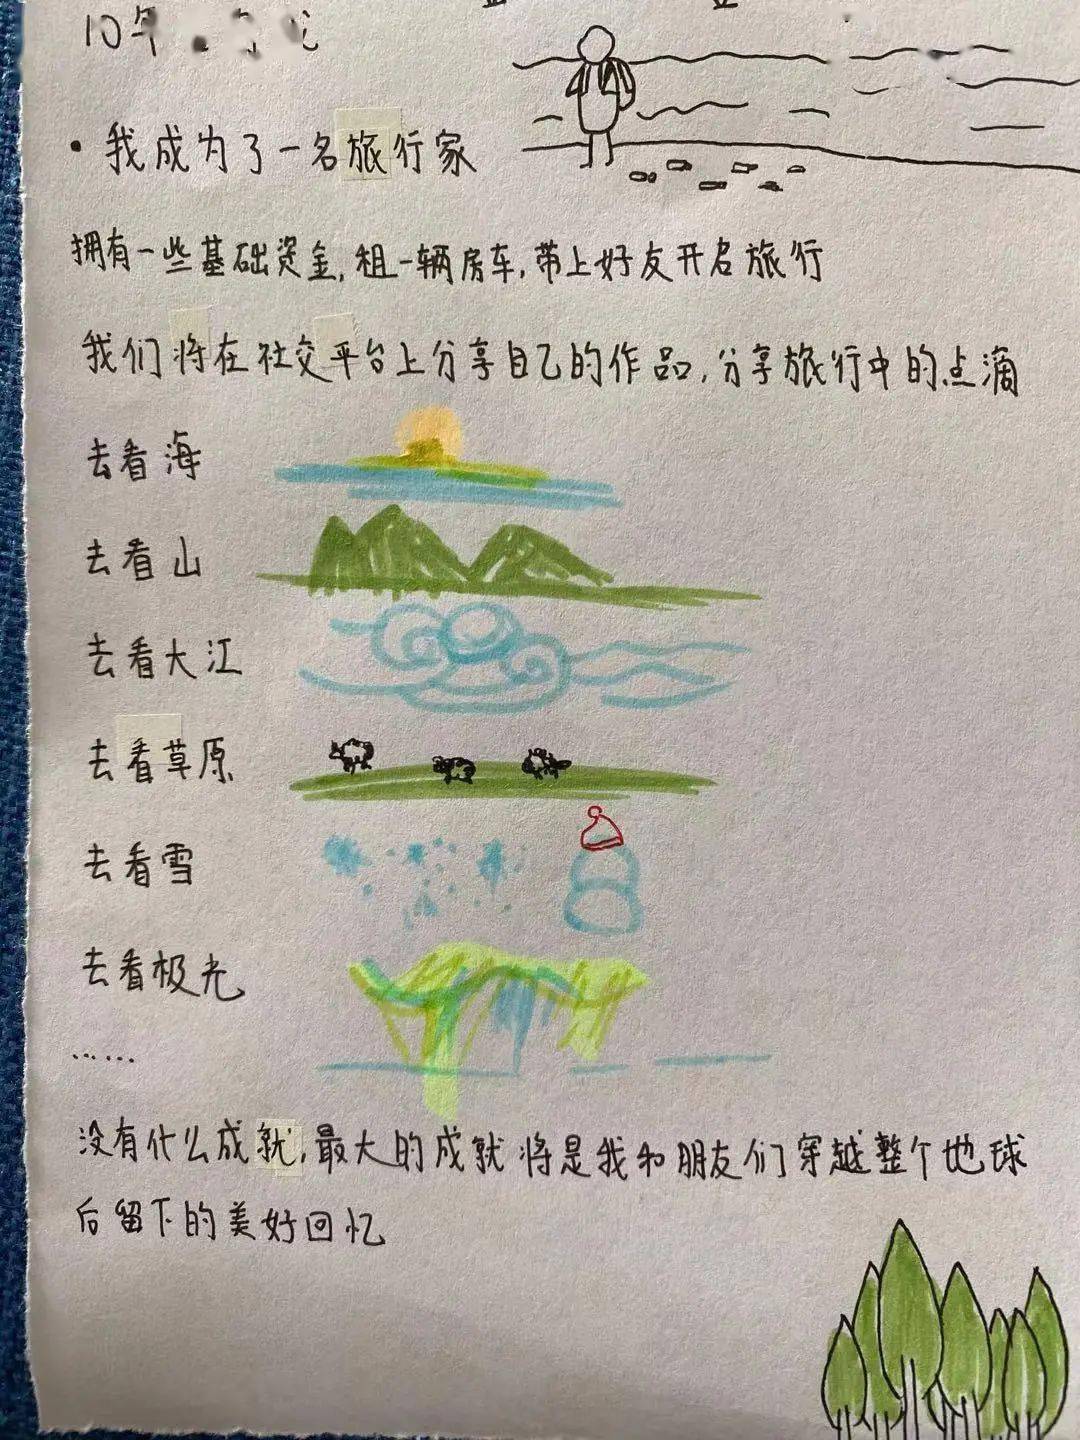 10年
·我成为了一名旅行家
拥有一些基础资金,租一辆房车,带上好友开启旅行
我们将在社交平台上分享自己的作品,分享旅行中的点滴
去看海
去看山
去看大江
去看草原
去看雪
去看极光
……
没有什么成就,最大的成就将是我和朋友们穿越整个地球
后留下的美好回忆